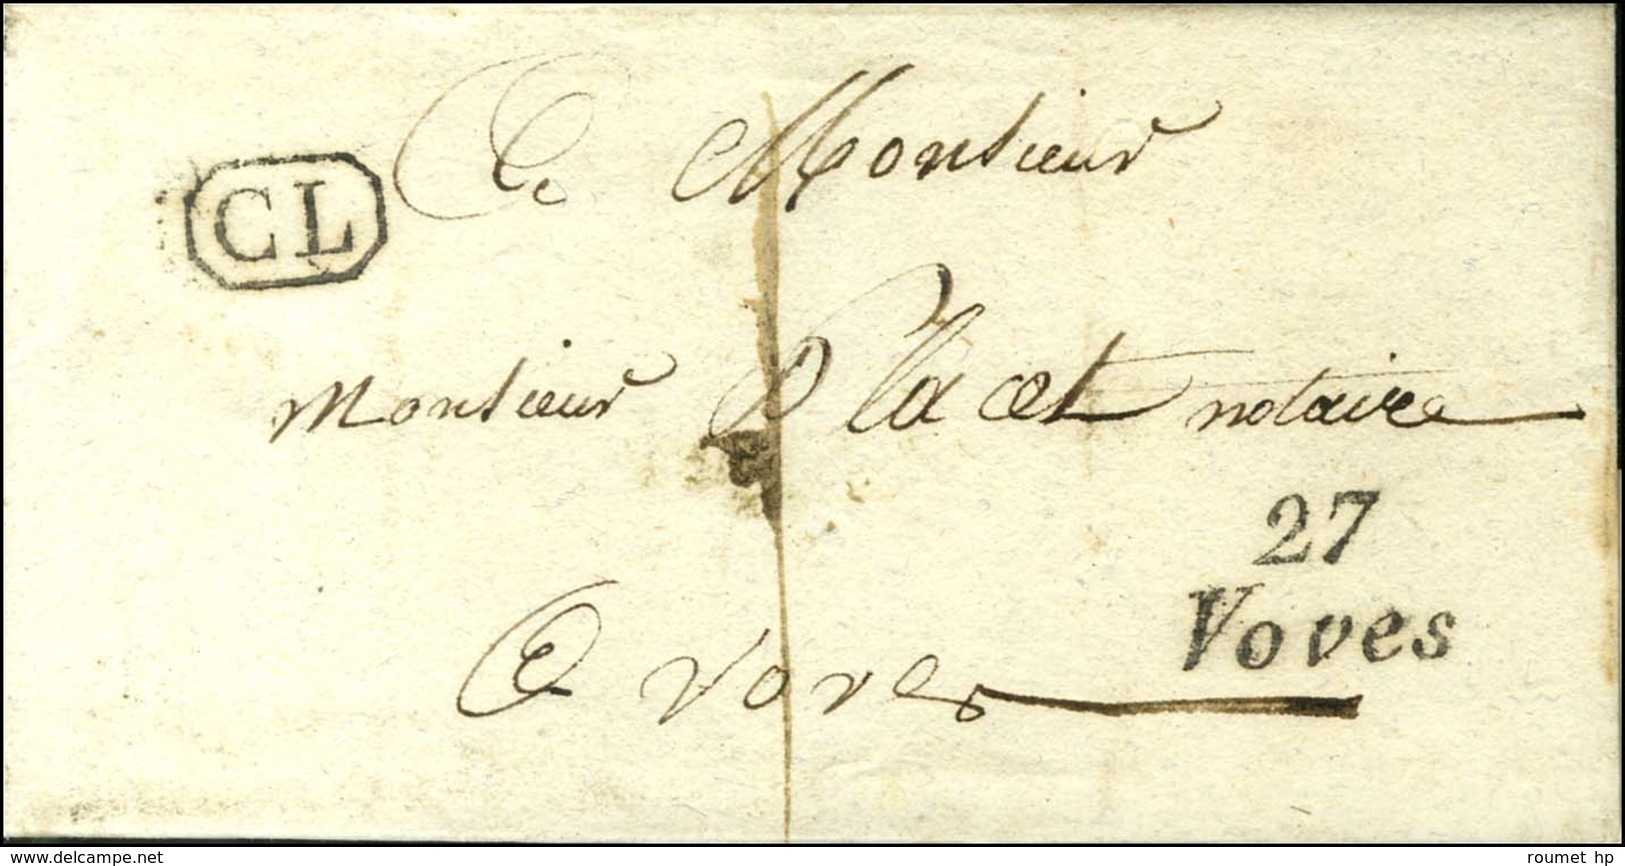 CL
A Monsieur
Monsieur Placet notaire
27
Voves
A voves
www.delcampe.net
roumet hp